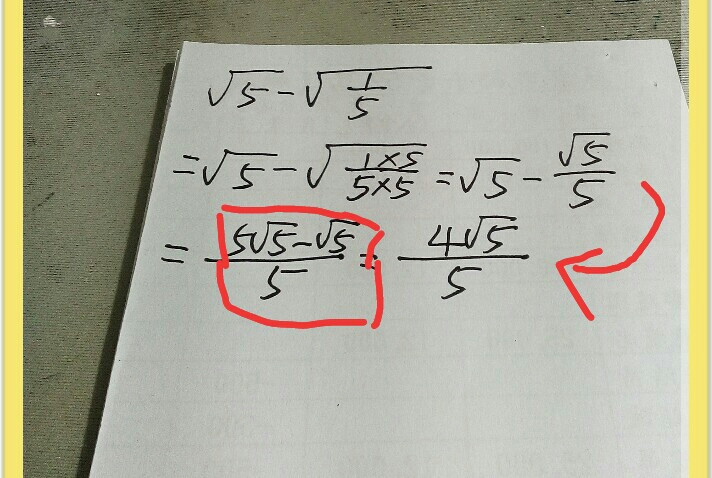 √5-√(1/5)
=√5-√((1×5)/(5×5))=√5-√5/5
=(5√5-√5)/5=4√5/5